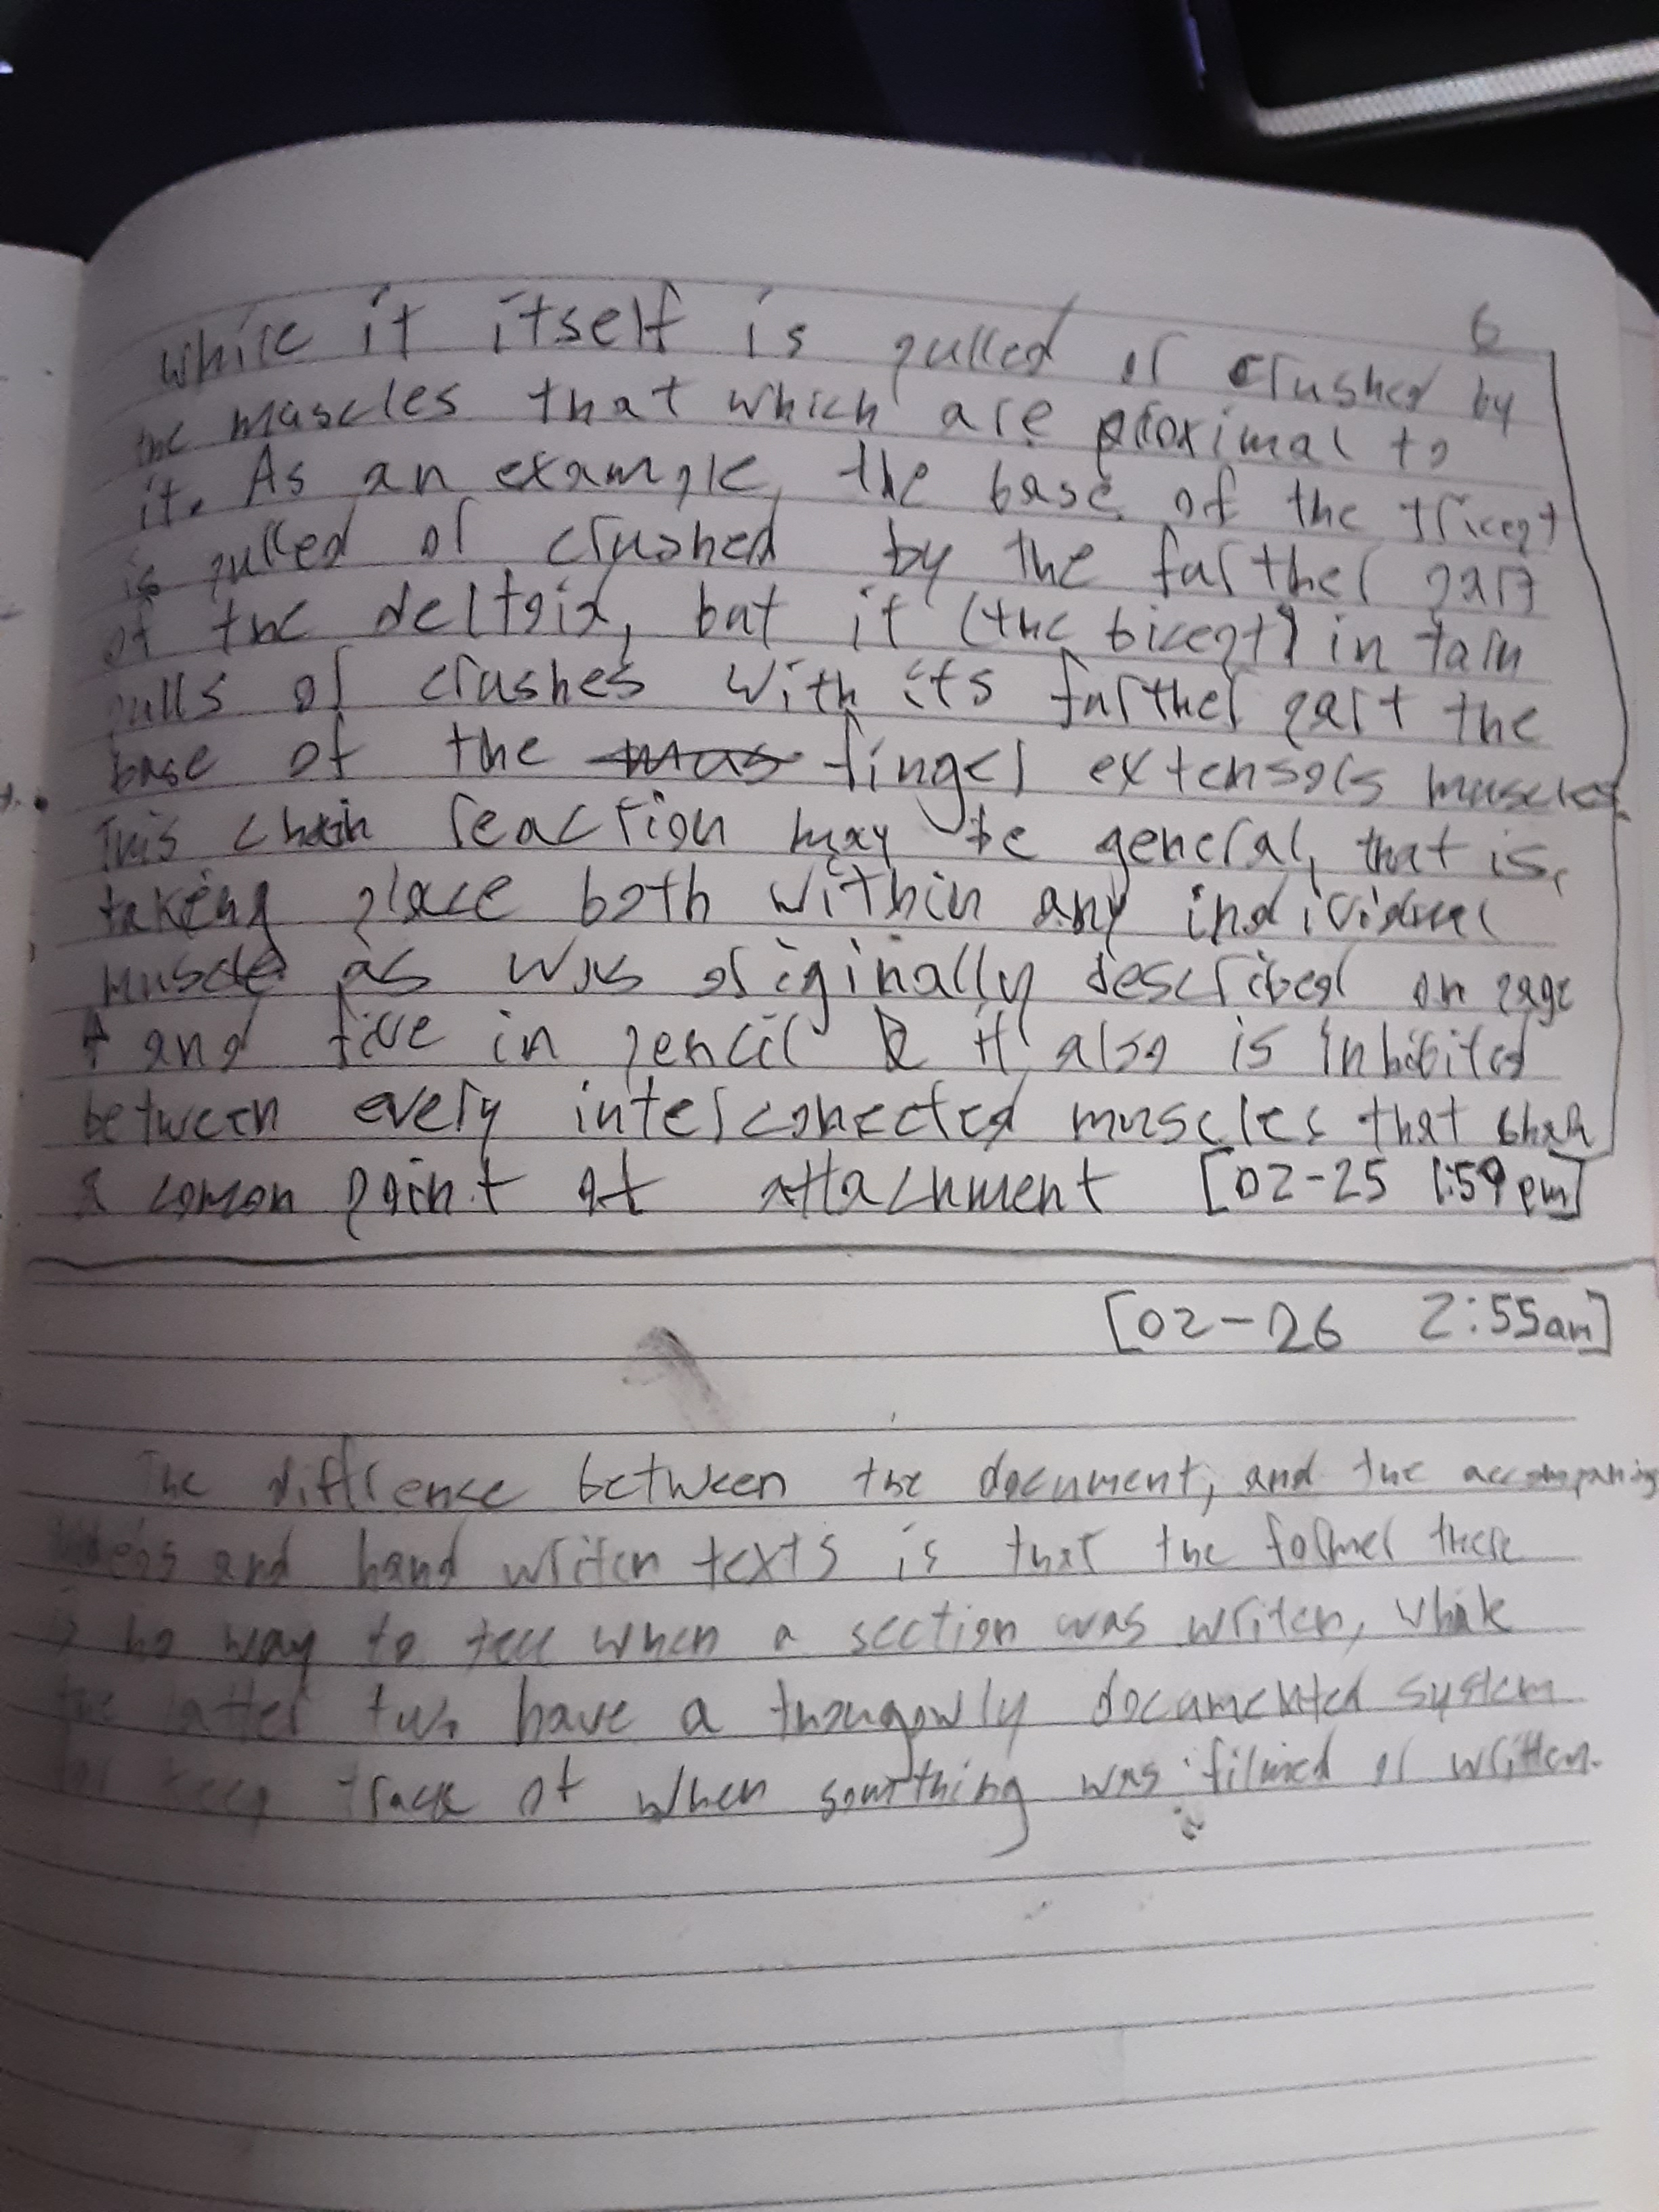 6
while it itself is pulled or crushed by
the muscles that which are proximal to
it. As an example, the base of the tricept
is pulled or crushed by the further part
of the deltoid, but it (the bicept) in turn
pulls or crushes with its further part the
base of the finger extensors muscles.
This chain reaction may be general, that is,
taking place both within any individual
muscle as was originally described on page
4 and five in pencil & it also is inhibited
between every interconected muscles that share
a comon point of attachment [02-25 1:59pm]
[02-26 2:55am]
The diffrence between the document, and the accompaning
and hand writen texts is that the former there
is no way to tell when a section was writen, while
the latter two have a thougowly documented system
for keep track of when something was filmed or written.